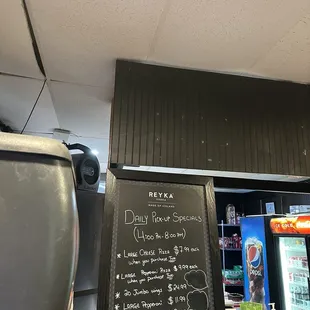 REYKA
VODKA
MADE OF ICELAND
DAILY PICK-UP SPECIALS
(4:00 PM - 8:00 PM)
* LARGE CHEESE PIZZA $7.99 each
when you purchase Two
* LARGE Pepperoni PIZZA $9.99 each
when you purchase Two
* 20 Jumbo wings $24.99
* LARGE Pepperoni $11.99
pepsi